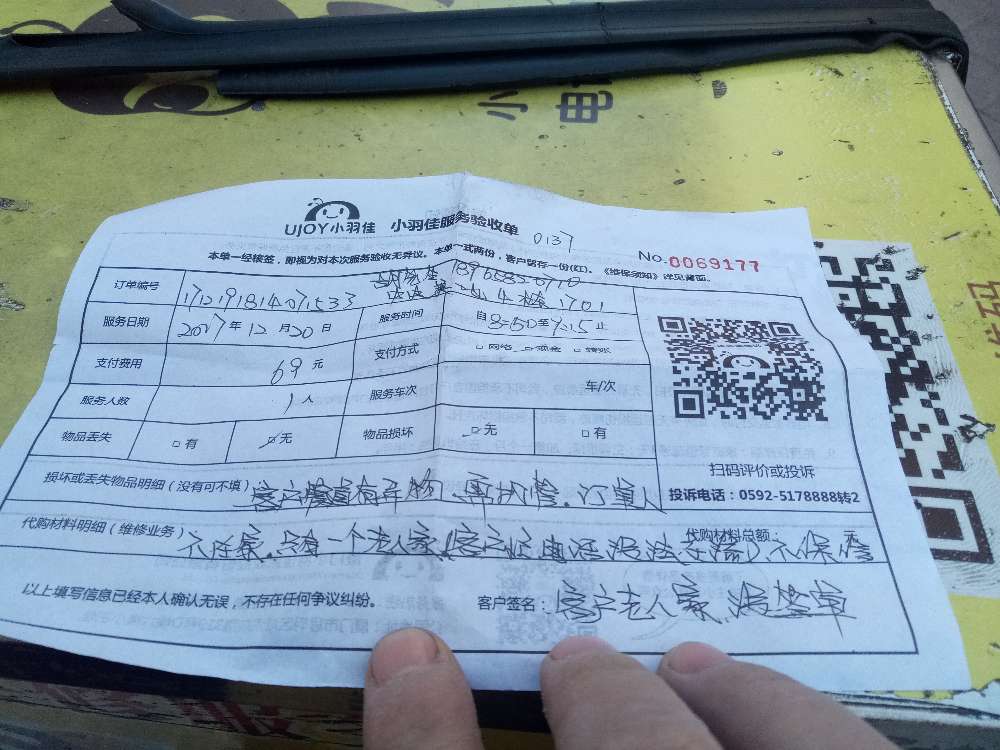 小
电
UJOY小羽佳 小羽佳服务验收单 0137
No.0069177
本单一经核签，即视为对本次服务验收无异议。本单一式两份，客户留存一份(红)。《维保须知》详见背面。
订单编号 1712191814071533
4栋1701
服务日期 2017年12月20日 服务时间 自8:50至9:15止
支付费用 69元 支付方式 □网络 □现金 □转账
服务人数 1人 服务车次 车/次
物品丢失 □有 ☑无 物品损坏 ☑无 □有
扫码评价或投诉
投诉电话：0592-5178888转2
损坏或丢失物品明细（没有可不填） 客户管道有异物 订单人
代购材料明细（维修业务） 代购材料总额： 元
不在家，只有一个老人家 不保修
以上填写信息已经本人确认无误，不存在任何争议纠纷。 客户签名：客户老人家，没签单